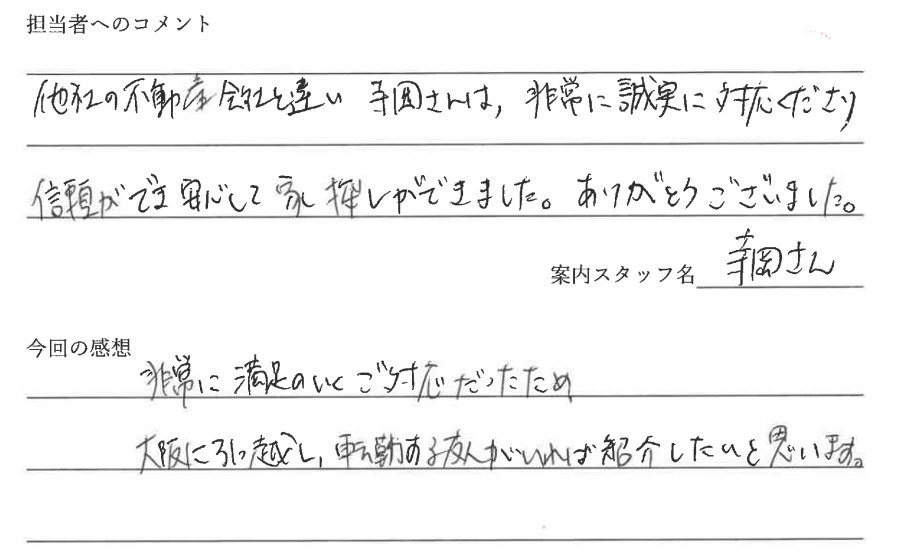 担当者へのコメント
他社の不動産会社と違い 寺岡さんは、非常に誠実に対応くださり
信頼ができ安心して家探しができました。ありがとうございました。
案内スタッフ名 寺岡さん
今回の感想
非常に満足のいくご対応だったため
大阪に引っ越し、転勤ある友人がいれば紹介したいと思います。